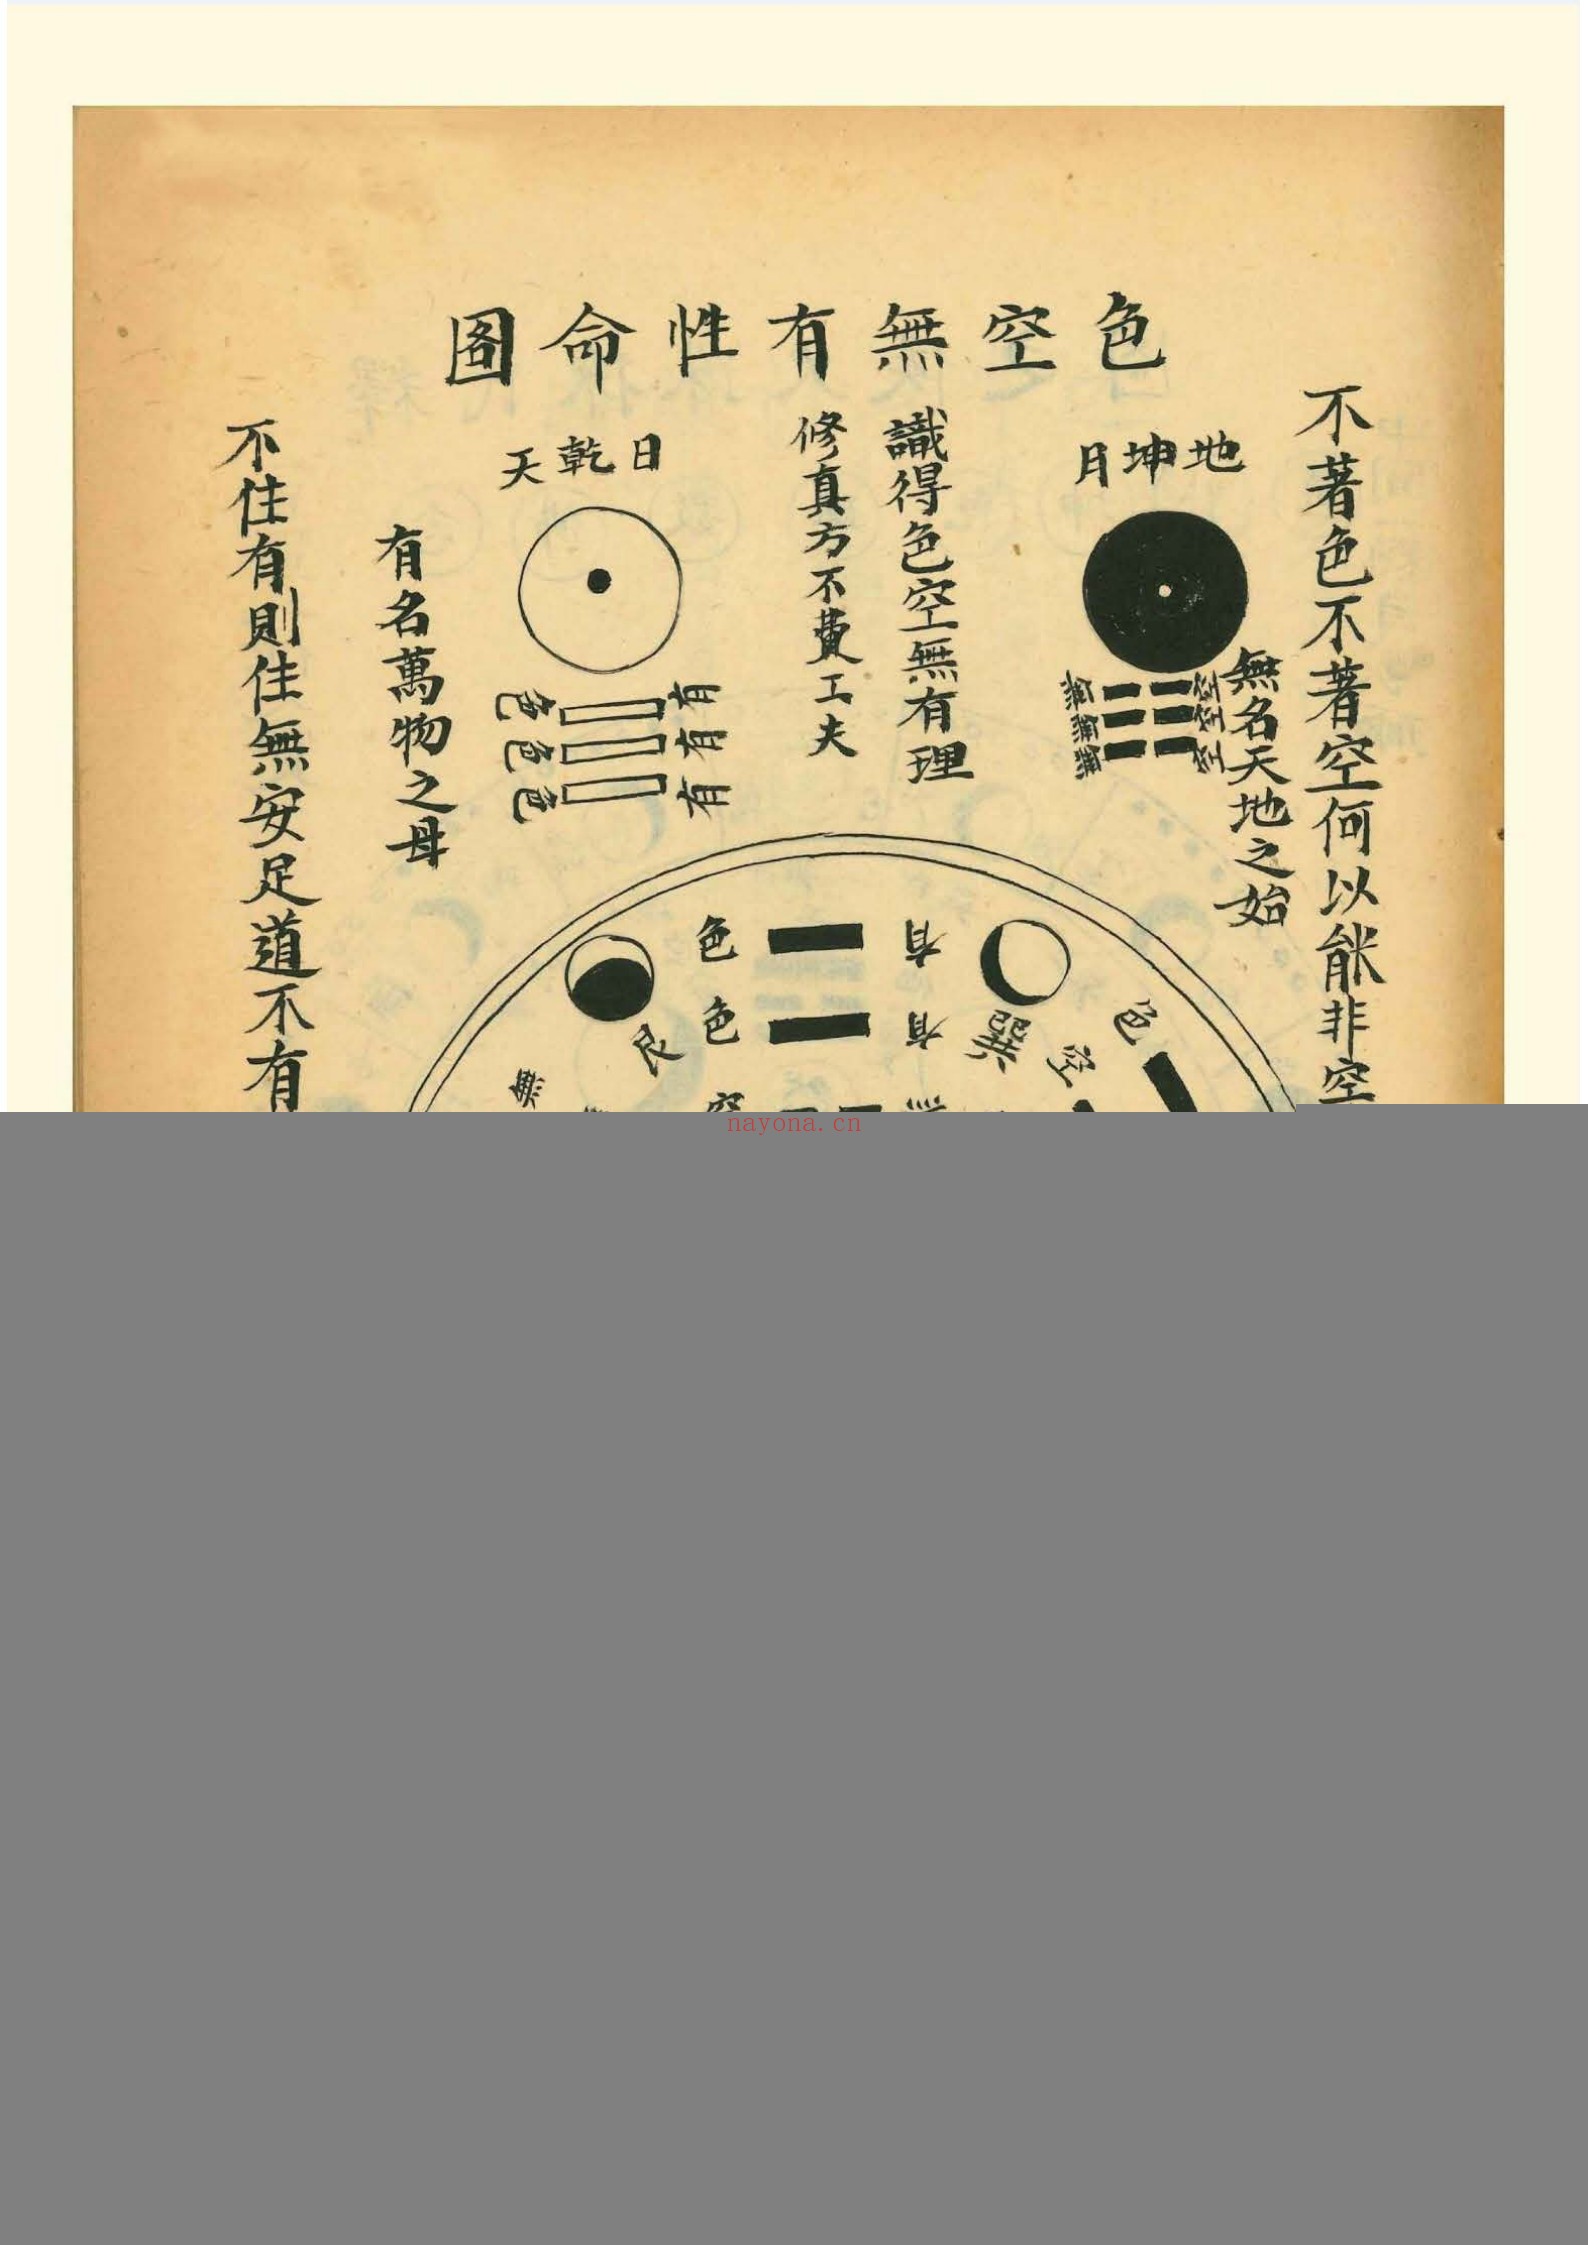 色空無有性命圖
不著色不著空何以能非空
地坤月
無名天地之始
空空空
無無無
識得色空無有理
修真方不費工夫
日乾天
有有有
色色色
有名萬物之母
不住有則住無安足道不有
色
空
巽
有
有
色
色
空
艮
無
nayona.cn